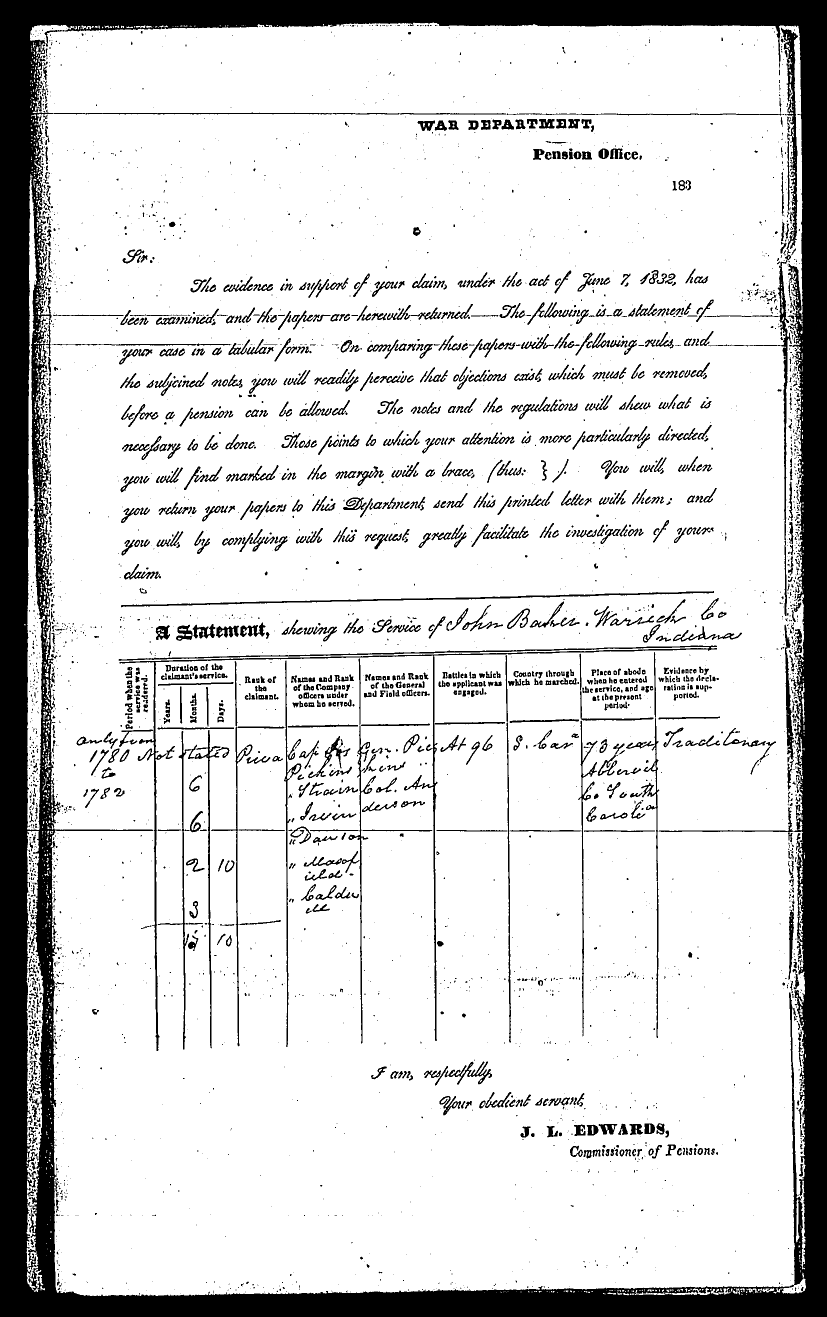 WAR DEPARTMENT,
Pension Office,
183
Sir:
The evidence in support of your claim, under the act of June 7, 1832, has
been examined, and the papers are herewith returned. The following is a statement of
your case in a tabular form. On comparing these papers with the following rules, and
the subjoined notes, you will readily perceive that objections exist, which must be removed,
before a pension can be allowed. The notes and the regulations will shew what is
necessary to be done. Those points to which your attention is more particularly directed,
you will find marked in the margin with a brace, (thus: } ). You will, when
you return your papers to this Department, send this printed letter with them; and
you will, by complying with this request, greatly facilitate the investigation of your
claim.
A Statement, shewing the Service of John Baker. Warrick Co
Indiana
Period when the service was rendered.
Duration of the claimant's service.
Years.
Months.
Days.
Rank of the claimant.
Names and Rank of the Company officers under whom he served.
Names and Rank of the General and Field officers.
Battles in which the applicant was engaged.
Country through which he marched.
Place of abode when he entered the service, and age at the present period.
Evidence by which the declaration is supported.
1780 Not stated Priva Cap Gen. Pic At 96 S. Car^a 73 years Traditonary
to Pickins kins Abbevil
1782 6 " Strain Col. An Co South
6 " Irvin derson Carol^a
" Dawson
2 10
3 " Caldw
ell
10
I am, respectfully,
Your obedient servant,
J. L. EDWARDS,
Commissioner of Pensions.